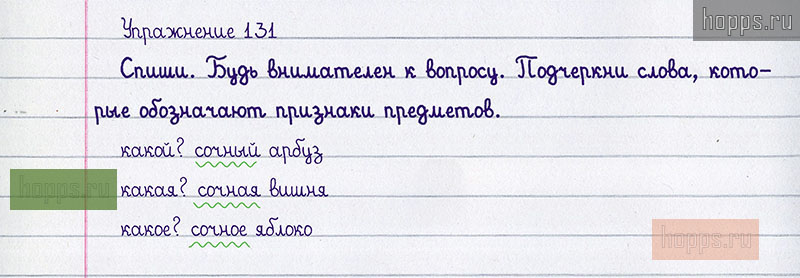 hopps.ru
Упражнение 131
Спиши. Будь внимателен к вопросу. Подчеркни слова, кото-
рые обозначают признаки предметов.
какой? сочный арбуз
hopps.ru какая? сочная вишня
какое? сочное яблоко
hopps.ru